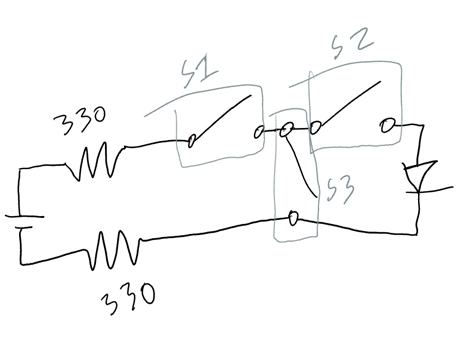 S2
S1
330
S3
330